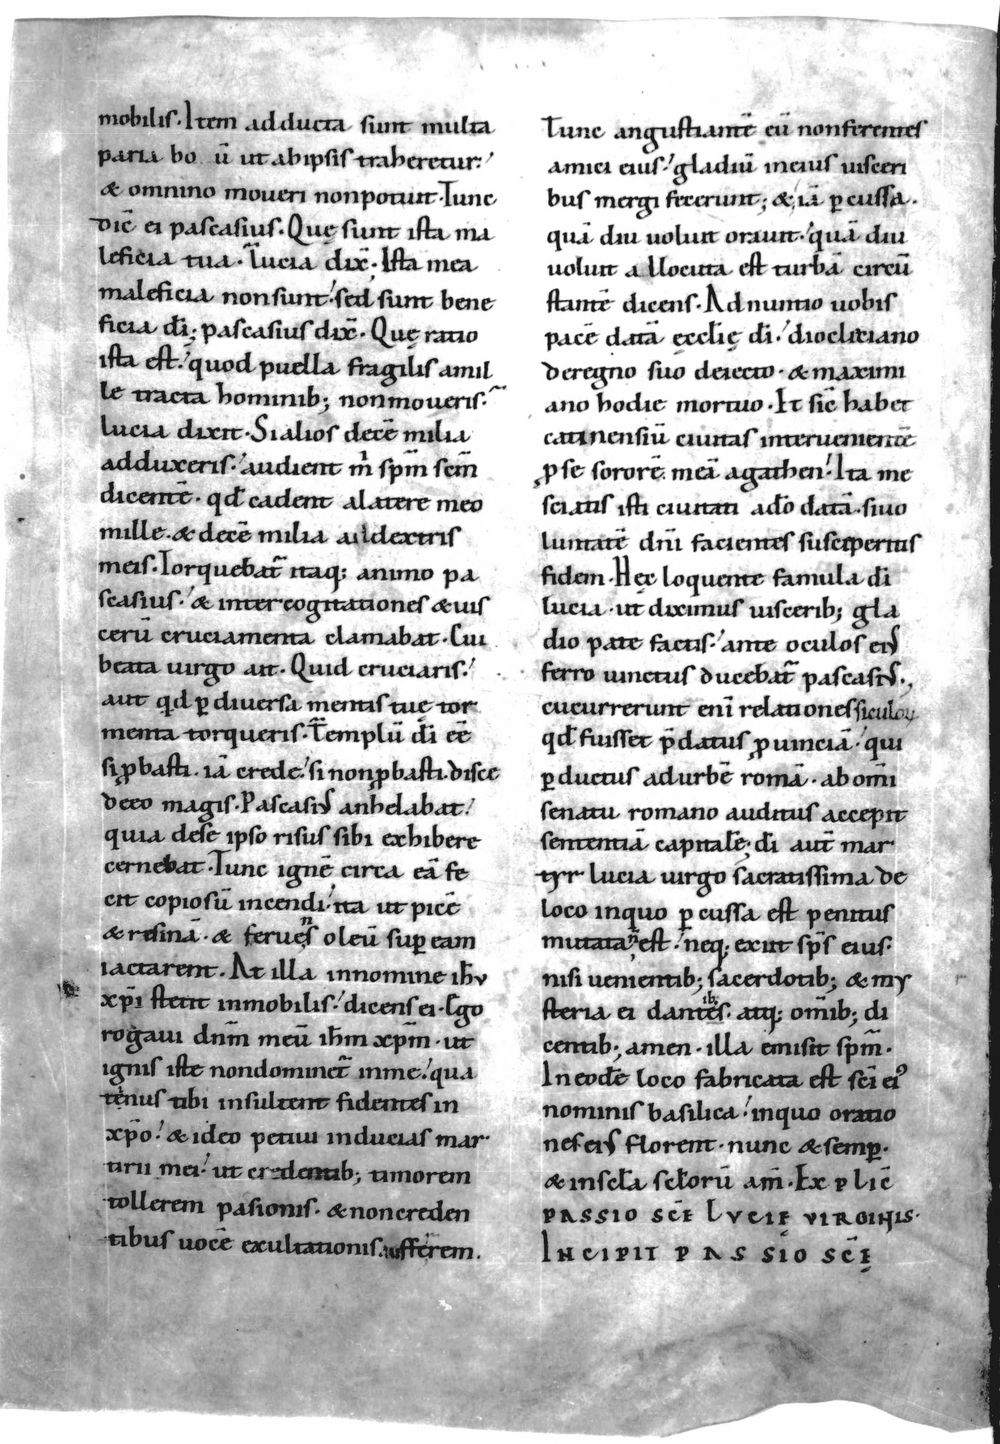 mobilis. Item adducta sunt multa
paria bo ū ut abipsis traheretur:'
& omnino moveri nonpotuit. Tunc
dic̄ ei pascasius. Quę sunt ista ma
leficia tua. Lucia dix̄; Ista mea
maleficia nonsunt:' sed sunt bene
ficia d̄i; pascasius dix̄. Quę ratio
ista est:' quod puella fragilis amil
le tracta hominib; nonmoveris.
lucia dixit. Sialios decē milia
adduxeris:' audient m̄ sp̄m sc̄m
dicentē. qd̄ cadent alatere meo
mille. & decē milia a dextris
meis. Torquebat̄ itaq; animo pa
scasius:' & inter cogitationes & vis
cerū cruciamenta clamabat. Cui
beata virgo ait. Quid cruciaris:'
aut qd̄ ꝑ diversa mentis tuę tor
menta torqueris. Templū d̄i eē
si ꝓbasti. iā crede:' si non ꝓbasti. disce
deeo magis. Pascasiꝰ anhelabat:'
quia dese ipso risus sibi exhibere
cernebat. Tunc ignē circa eā fe
cit copiosū incendi:' ita ut picē
& resinā. & fervēs oleū suꝑ eam
iactarent. At illa innomine ih̄v
xp̄i stetit inmobilis:' dicens ei. Ego
rogavi dn̄m meū ih̄m xp̄m. ut
ignis iste nondominet̄ inme:' qua
tenus tibi insultent fidentes in
xp̄o:' & ideo petivi inducias mar
tirii mei:' ut credentib; timorem
tollerem pasionis. & noncreden
tibus vocē exultationis. ufferrem.
Tunc angustiantē eū nonferentes
amici eius:' gladiū ineius visceri
bus mergi fecerunt; & iā ꝑcussa.
quā diu voluit oravit:' quā diu
voluit allocuta est turbā circū
stantē dicens. Adnuntio vobis
pacē datā ęcclię d̄i:' diocliciano
deregno suo deiecto. & maximi
ano hodie mortuo. Et sic̄ habet
catinensiū civitas intervenientē
ꝓ se sororē meā agathen:' Ita me
sciatis isti civitati ad̄o datā. sivo
luntatē dn̄i facientes susceperitis
fidem. Hęc loquente famula d̄i
lucia. ut diximus viscerib; gla
dio pate factis:' ante oculos eiꝰ
ferro vinctus ducebat̄ pascasiꝰ.
cucurrerunt eni relationes siculoꝝ
qd̄ fuisset p̄datus ꝓvinciā. qui
ꝑductus adurbē romā. ab om̄i
senatu romano auditus accepit
sententiā capitalē; d̄i aut̄ mar
tyr lucia virgo sacratissima de
loco inquo ꝑcussa est penitus
mutata n̄ est:' neq; exiit sp̄s eius.
nisi venientib; sacerdotib; & my
steria ei dantib;. atq; om̄ib; di
centib; amen. illa emisit sp̄m.
In eodē loco fabricata est sc̄i eiꝰ
nominis basilica:' inquo oratio
nes eiꝰ florent. nunc & semꝑ.
& insc̄la sc̄lorū am̄. Explic̄
passio sc̄ę Lucię virginis.
Incipit passio sc̄ę